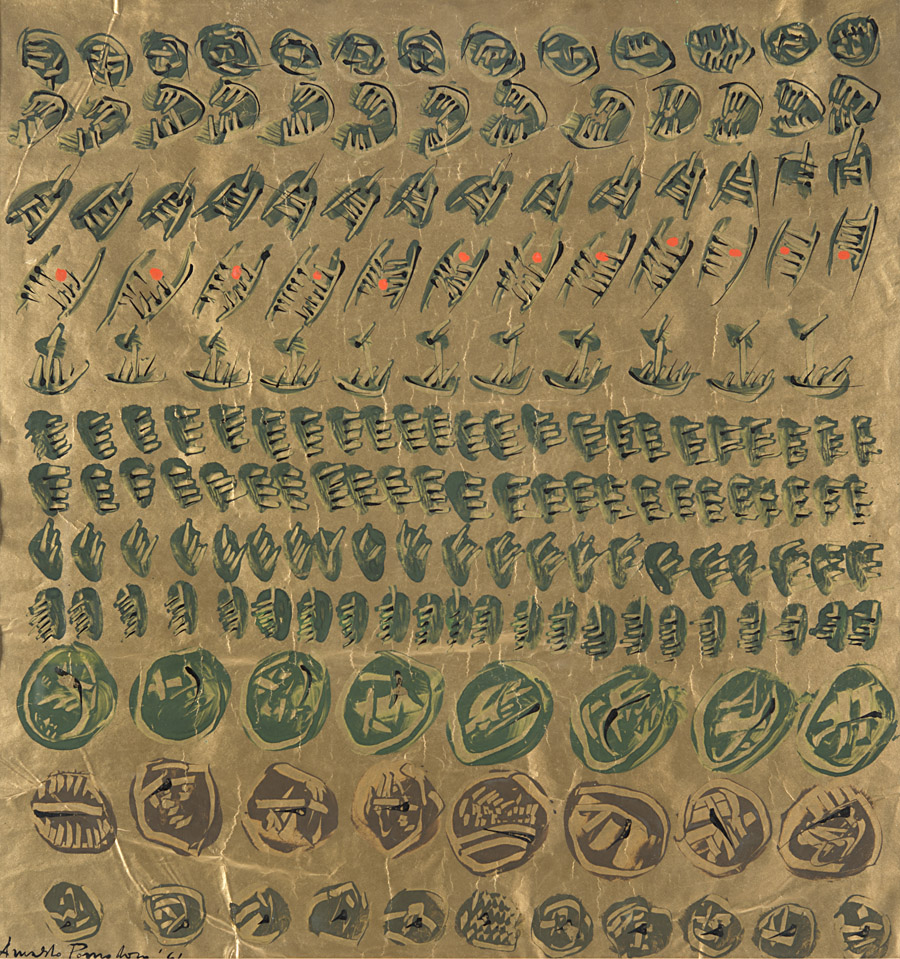 Arnaldo Pomodoro '61